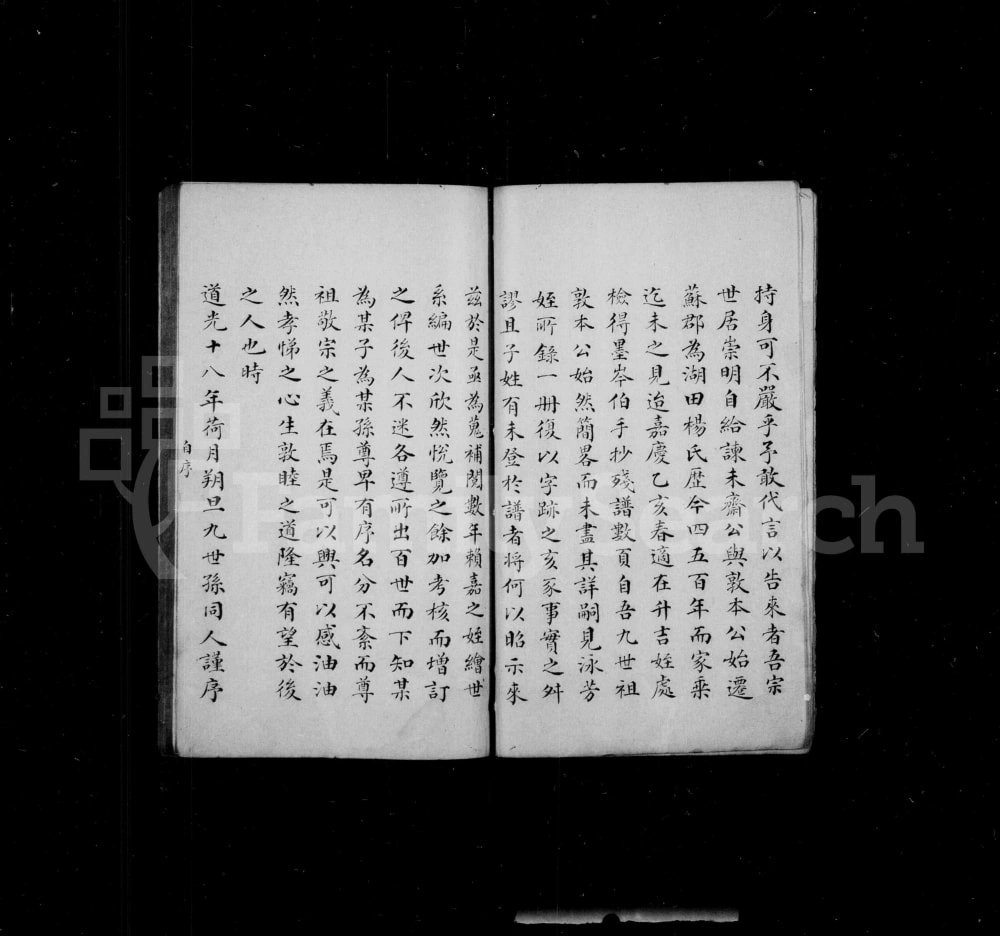 持身可不嚴乎予敢代言以告來者吾宗
世居崇明自給諫未齋公與敦本公始遷
蘇郡為湖田楊氏歷今四五百年而家乘
迄未之見迨嘉慶乙亥春適在升吉姪處
檢得墨岑伯手抄殘譜數頁自吾九世祖
敦本公始然簡畧而未盡其詳嗣見泳芳
姪所錄一冊復以字跡之亥豕事實之舛
謬且子姓有未登於譜者將何以昭示來
茲於是亟為蒐補閱數年賴嘉之姪繪世
系編世次欣然悅覽之餘加考核而增訂
之俾後人不迷各遵所出百世而下知某
為某子為某孫尊卑有序名分不紊而尊
祖敬宗之義在焉是可以興可以感油油
然孝悌之心生敦睦之道隆竊有望於後
之人也時
道光十八年荷月朔旦九世孫同人謹序
自序
FamilySearch